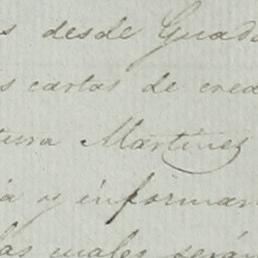 s desde Guada
s cartas de cred
tura Martinez
ia y informar
las cuales serán